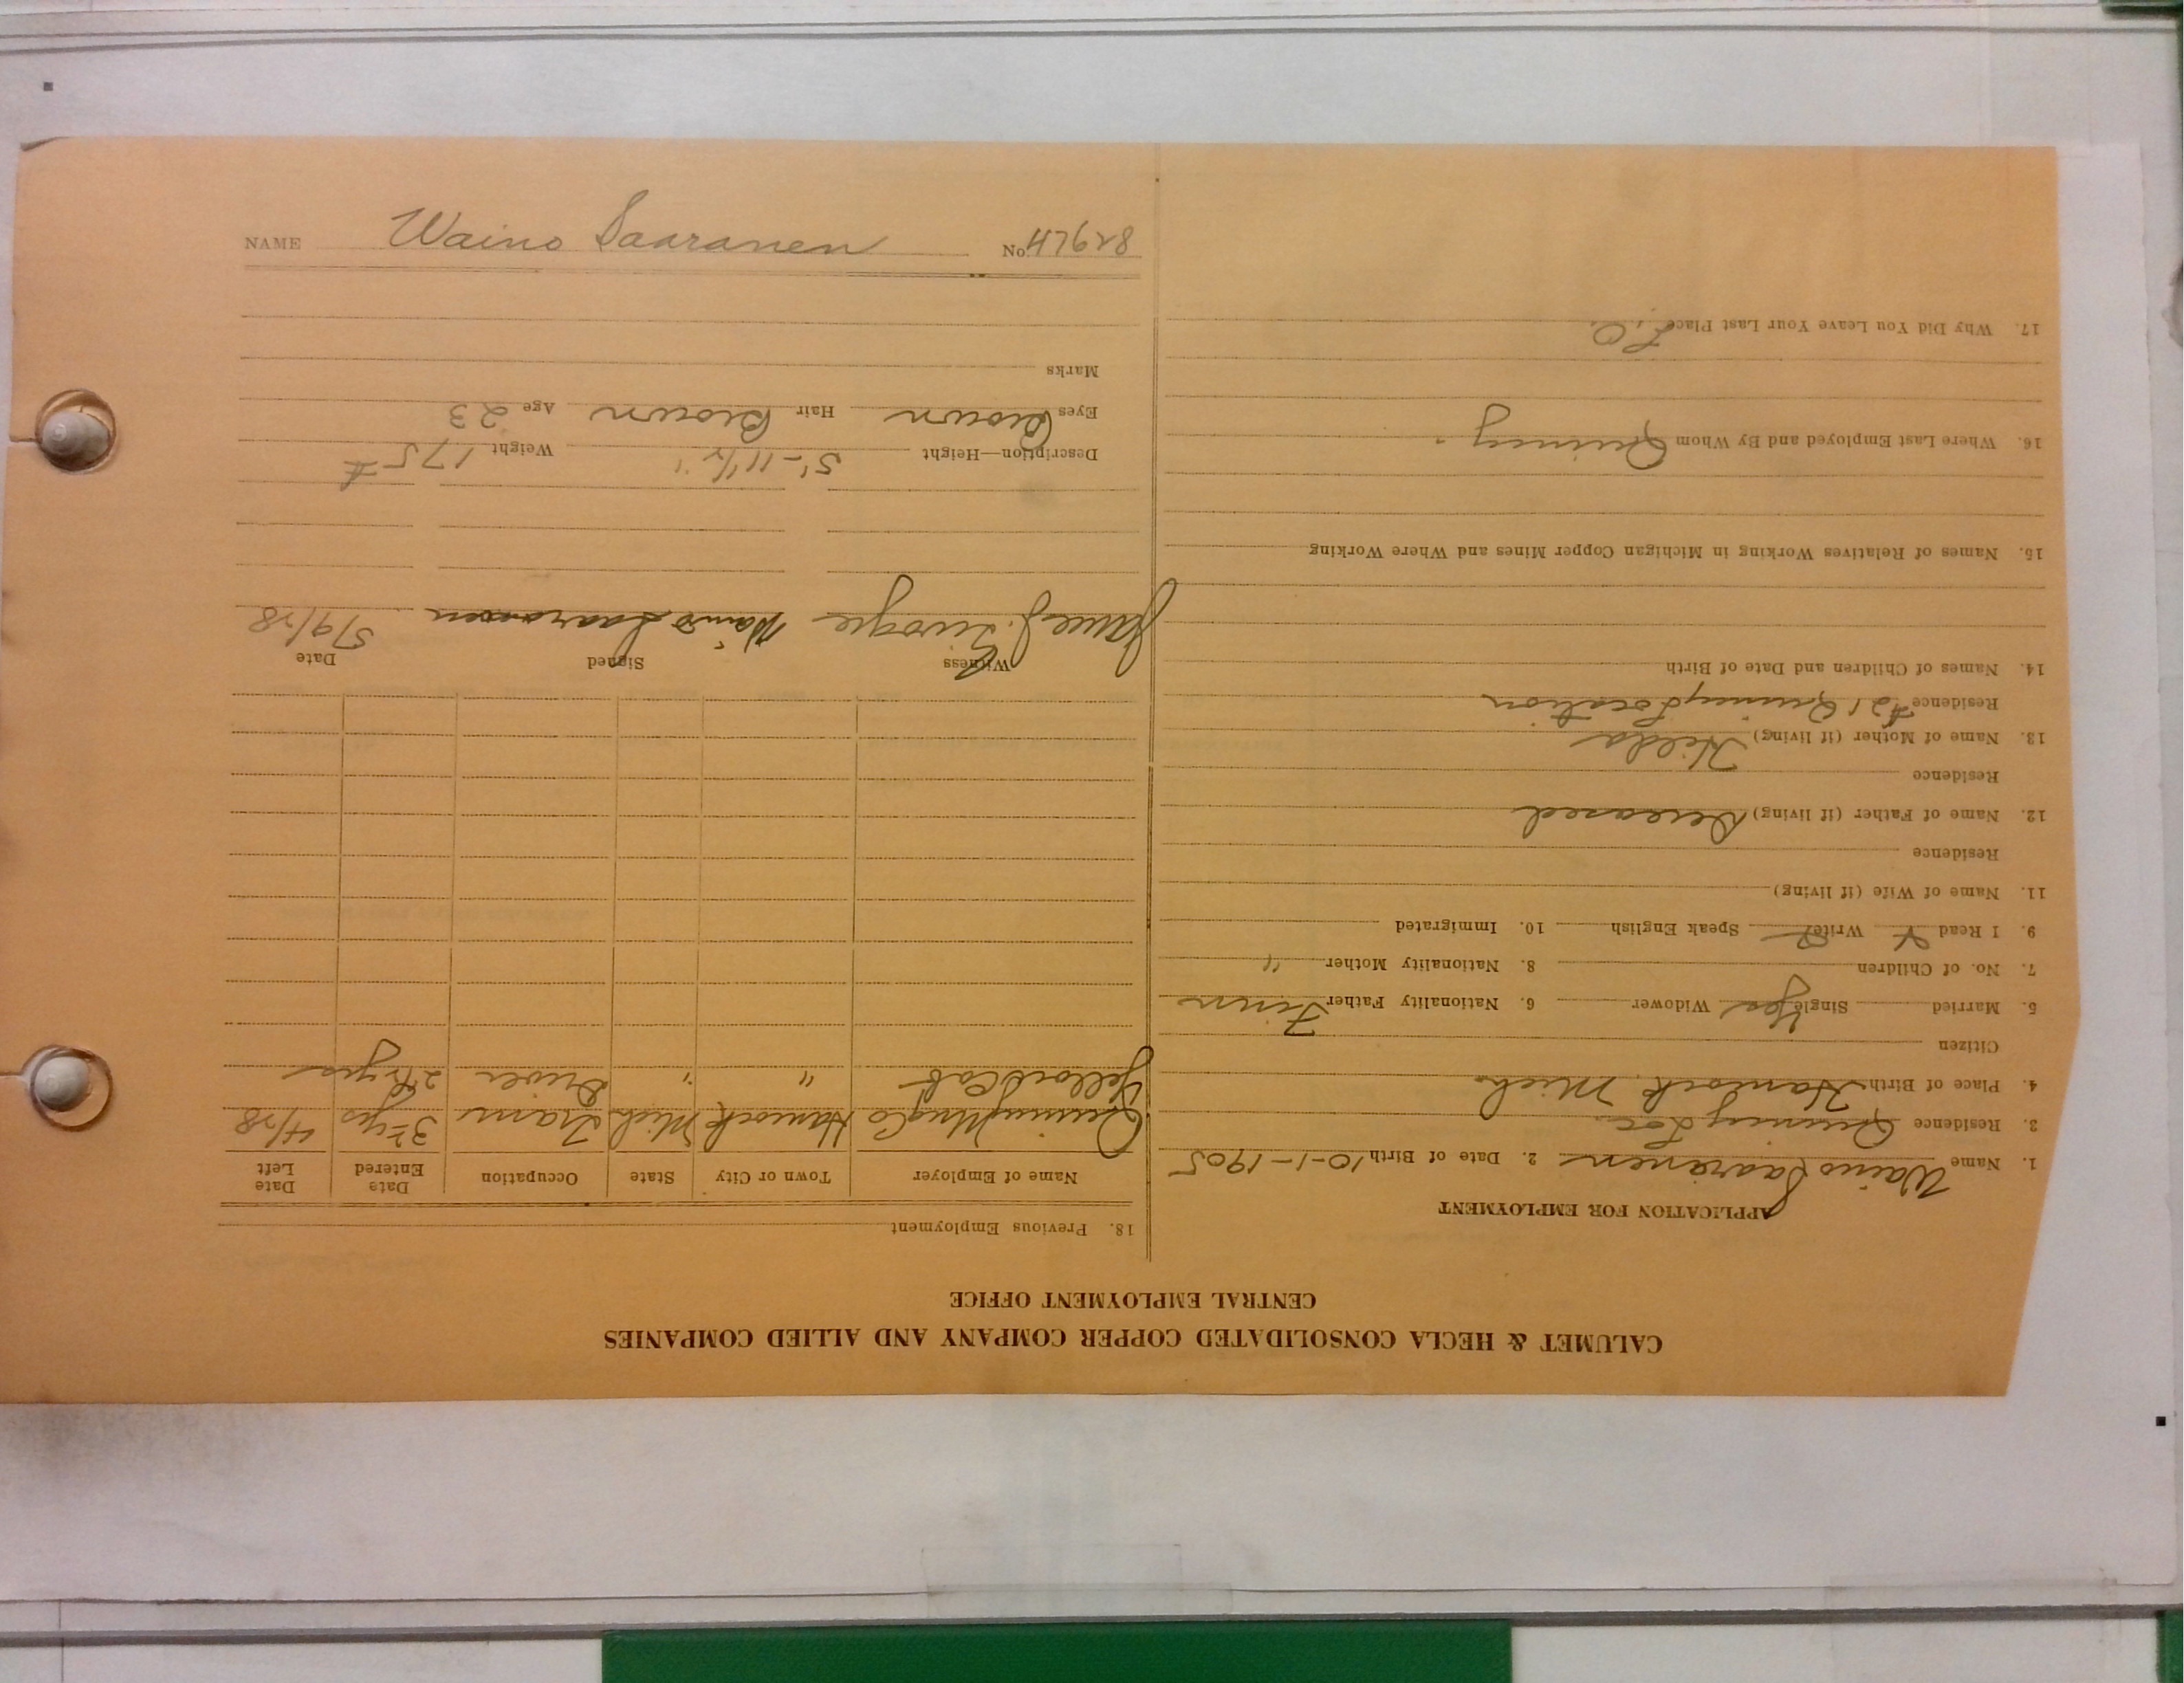 CALUMET & HECLA CONSOLIDATED COPPER COMPANY AND ALLIED COMPANIES
CENTRAL EMPLOYMENT OFFICE
APPLICATION FOR EMPLOYMENT
1. Name Waino Saaranen 2. Date of Birth 10-1-1905
3. Residence Quincy Loc.
4. Place of Birth Hancock, Mich.
Citizen
5. Married Single Yes Widower 6. Nationality Father Finn
7. No. of Children 8. Nationality Mother "
9. I Read Write Speak English 10. Immigrated
11. Name of Wife (if living)
Residence
12. Name of Father (if living) Deceased
Residence
13. Name of Mother (if living) Hilda
Residence #21 Quincy Location
14. Names of Children and Date of Birth
15. Names of Relatives Working in Michigan Copper Mines and Where Working
16. Where Last Employed and By Whom Quincy.
17. Why Did You Leave Your Last Place
18. Previous Employment
Name of Employer Town or City State Occupation Date Entered Date Left
Quincy Mng Co Hancock Mich Tram 3 yrs 4/28
Yellow Cab " " Driver 2½ yrs
Witness Signed Date
James J. Waino Saaranen 5/9/28
Description—Height 5'-11½" Weight 175 #
Eyes Brown Hair Brown Age 23
Marks
NAME Waino Saaranen No. 47628